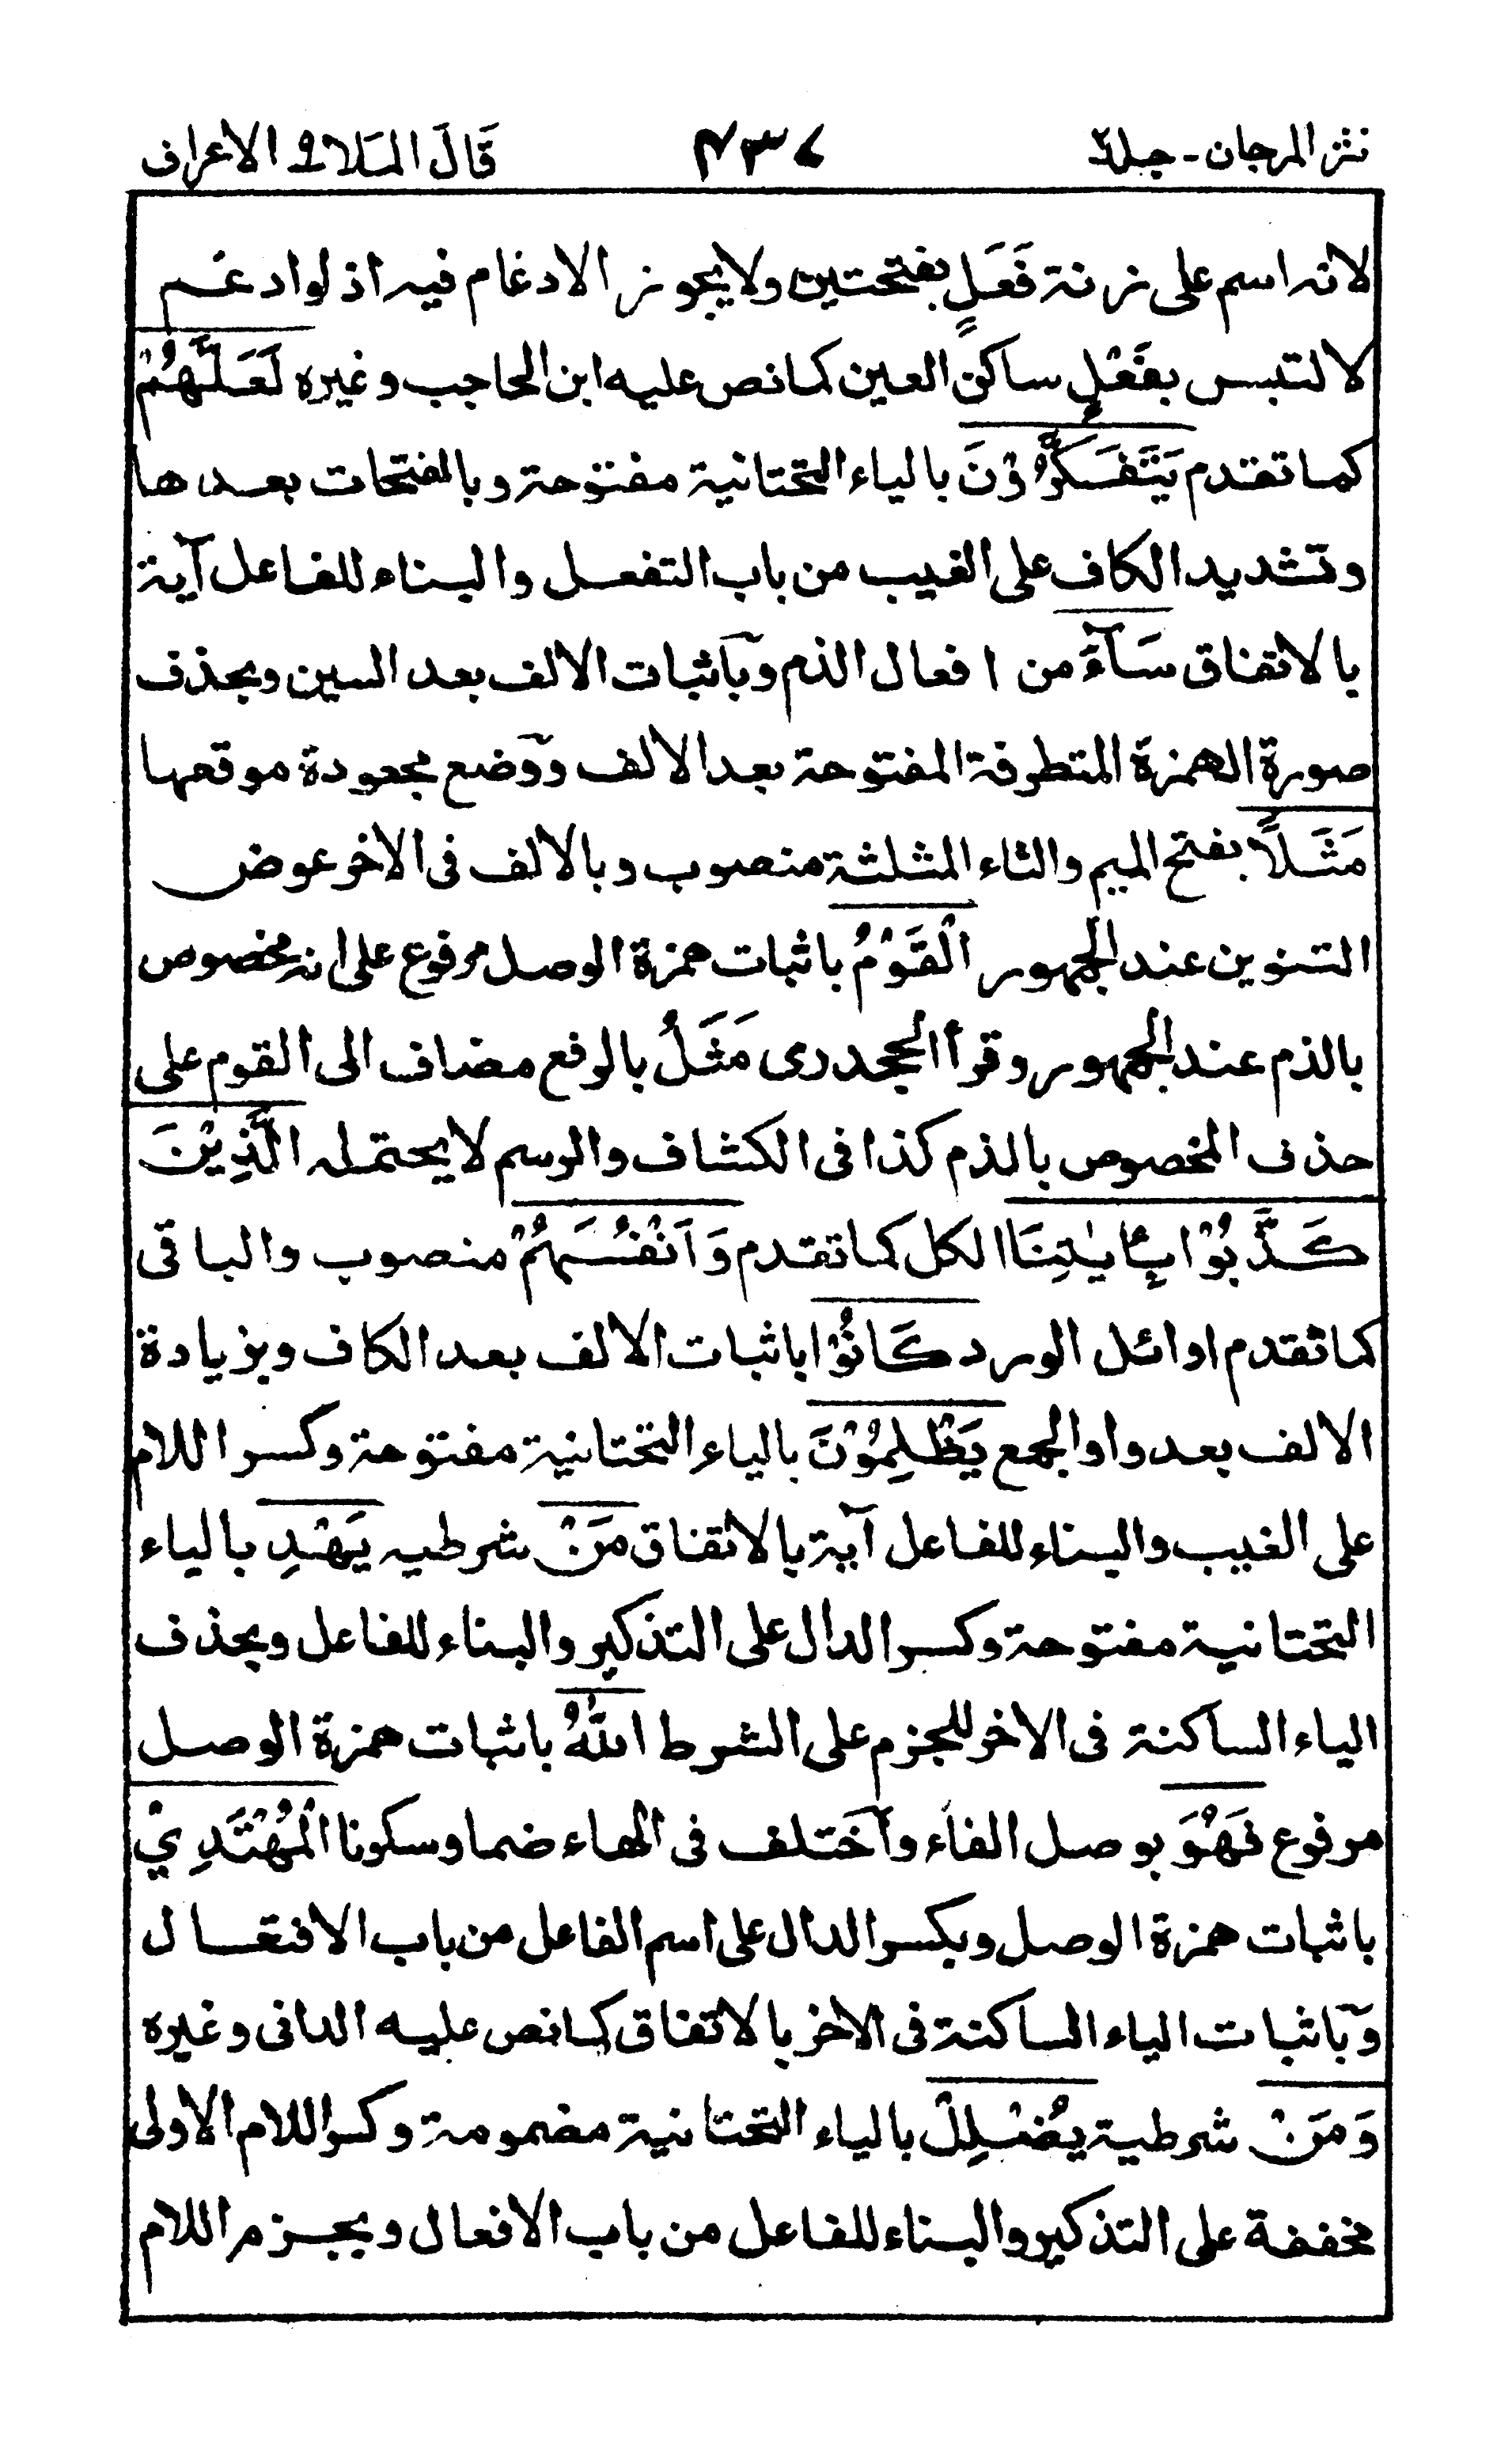 نثر المرجان - جلد٢ ٤٣٧ قَالَ المَلا٩ الاعراف
لانه اسم على زنة فَعَلٍ بفتحتين ولا يجوز الادغام فيه اذ لوادغم
لالتبس بفَعْلٍ ساكن العين كما نص عليه ابن الحاجب وغيره لَعَلَّهُمْ
كما تقدم يَتَفَكَّرُوْنَ بالياء التحتانية مفتوحة وبالفتحات بعدها
وتشديد الكاف على الغيب من باب التفعل والبناء للفاعل آية
بالاتفاق سَآءَ من افعال الذم وبآثبات الالف بعد السين وبحذف
صورة الهمزة المتطرفة المفتوحة بعد الالف ووَضع مجعودة موقعها
مَثَلًا بفتح الميم والثاء المثلثة منصوب وبالالف فى الاخر عوض
التنوين عند الجمهور الْقَوْمُ باثبات همزة الوصل مرفوع على انه مخصوص
بالذم عند الجمهور وقرأ الجحدرى مَثَلُ بالرفع مضاف الى القوم على
حذف المخصوص بالذم كذا فى الكشاف والرسم لا يحتمله الَّذِيْنَ
كَذَّبُوْا بِاٰيٰتِنَا الكل كما تقدم وَاَنْفُسَهُمْ منصوب والباقى
كما تقدم اوائل الورد كَانُوْا باثبات الالف بعد الكاف وبزيادة
الالف بعد واو الجمع يَظْلِمُوْنَ بالياء التحتانية مفتوحة وكسر اللام
على الغيب والبناء للفاعل آية بالاتفاق مَنْ شرطيه يَهْدِ بالياء
التحتانية مفتوحة وكسر الدال على التذكير والبناء للفاعل وبحذف
الياء الساكنة فى الاخر للجزم على الشرط اللّٰهُ باثبات همزة الوصل
مرفوع فَهْوَ بوصل الفاء وآختلف فى الهاء ضما وسكونا الْمُهْتَدِيْ
باثبات همزة الوصل وبكسر الدال على اسم الفاعل من باب الافتعال
وبآثبات الياء الساكنة فى الاخر بالاتفاق كما نص عليه الدانى وغيره
وَمَنْ شرطية يُضْلِلْ بالياء التحتانية مضمومة وكسر اللام الاولى
مخففة على التذكير والبناء للفاعل من باب الافعال وبجزم اللام